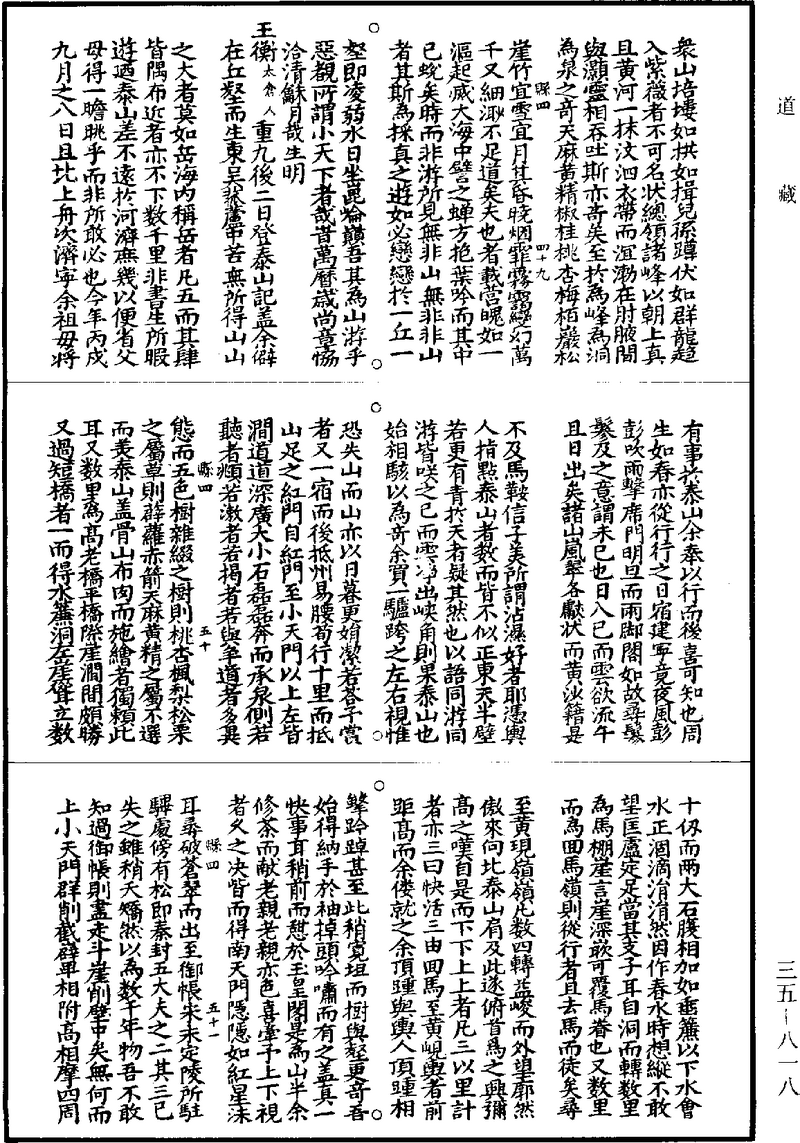 道藏
三五—八一八
衆山培塿如拱如揖兒孫蹲伏如群龍趋
入紫薇者不可名狀總領諸峰以朝上真
且黄河一抹汶泗衣帶而沉渤在肘腋間
與灝靈相吞吐斯亦奇矣至於為峰為洞
為泉之奇天麻黄精椒桂桃杏梅栢巖松
崖竹宜雪宜月其昏晓烟霏霧靄變幻萬
縣四 四十九
千又細渺不足道矣天也者載营魄如一
漚起滅大海中譬之蝉方抱葉吟而其中
已蜕矣時而非游所見無非山無非非山
者其斯為採真之遊如必戀戀於一丘一
壑即凌弱水日坐崑崙巔吾其為山游乎
惡覩所謂小天下者哉昔萬曆歲尚章恊
洽清龢月哉生明
王衡太倉人重九後二日登泰山記盖余僻
在丘壑而生東吴菰蘆中苦無所得山山
之大者莫如岳海内稱岳者凡五而其肆
皆隅布近者亦不下数千里非書生所暇
遊廼泰山差不遠於河濟庶幾以便省父
母得一瞻眺乎而非所敢必也今年丙戌
九月之八日且北上舟次濟寧余祖母将
有事於泰山余奉以行而後喜可知也周
生如春亦從行行之日宿建寧竟夜風彭
彭吹雨擊席門明旦而雨脚闇如故尋鬖
鬖及之意謂未已也日入已而雲欲流午
且日出矣諸山嵐翠各獻狀而黄沙籍是
不及馬鞍信子美所謂沾濕好者耶憑輿
人揹點泰山者数而皆不似正東天半壁
若更有青於天者疑其然也以語同游同
游皆咲之已而雲净出峡角則果泰山也
始相駭以為奇余買一驢跨之左右視惟
恐失山而山亦以日暮更娟潔若荅予賞
者又一宿而後抵州易腰荀行十里而抵
山足之紅門自紅門至小天門以上左皆
澗道道深廣大小石磊磊奔而承泉側若
聽者頫若漱者若揭者若與至道者多異
縣四 五十
態而五色樹雜綴之樹則桃杏楓梨松栗
之屬草則薜蘿赤箭天麻黄精之屬不選
而美泰山盖骨山布肉而施繪者獨頼此
耳又数里為高老橋平橋際崖澗間頗勝
又過短橋者一而得水簾洞左崖聳立数
十仭而两大石腹相加如垂簾以下水會
水正涸滴涓涓然因作春水時想縱不敢
望匡廬定足當其支子耳自洞而轉数里
為馬棚崖言崖深欹可覆馬眷也又数里
而為回馬嶺則從行者且去馬而徒矣尋
至黄現嶺嶺凡数四轉益峻而外望廓然
傲來向比泰山有及此遂俯首爲之興彌
高之嘆自是而下下上上者凡三以里計
者亦三曰快活三由回馬至黄峴輿者前
距高而余偻就之余頂踵與輿人頂踵相
犖跉踔甚至此稍寛坦而樹與壑更奇吾
始得納手於袖掉頭吟嘯而有之盖真一
快事耳稍前而憇於玉皇閣是為山半余
修茶而献老親老親亦色喜牽予上下視
者久之决眥而得南天門隠隠如紅星沫
縣四 五十一
耳尋破蒼翠而出至御帳宋未定陵所駐
驆處傍有松即秦封五大夫之二其三已
失之雖稍夭矯然以為数千年物吾不敢
知過御帳則盡走斗崖削壁中矣無何而
上小天門群削截辟單相附高相摩四周